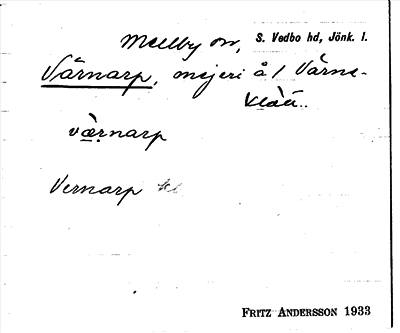 Mellby sn, S. Vedbo hd, Jönk. l.
Värnarp, mejeri å 1 Värns-
värnarp
Vernarp
FRITZ ANDERSSON 1933